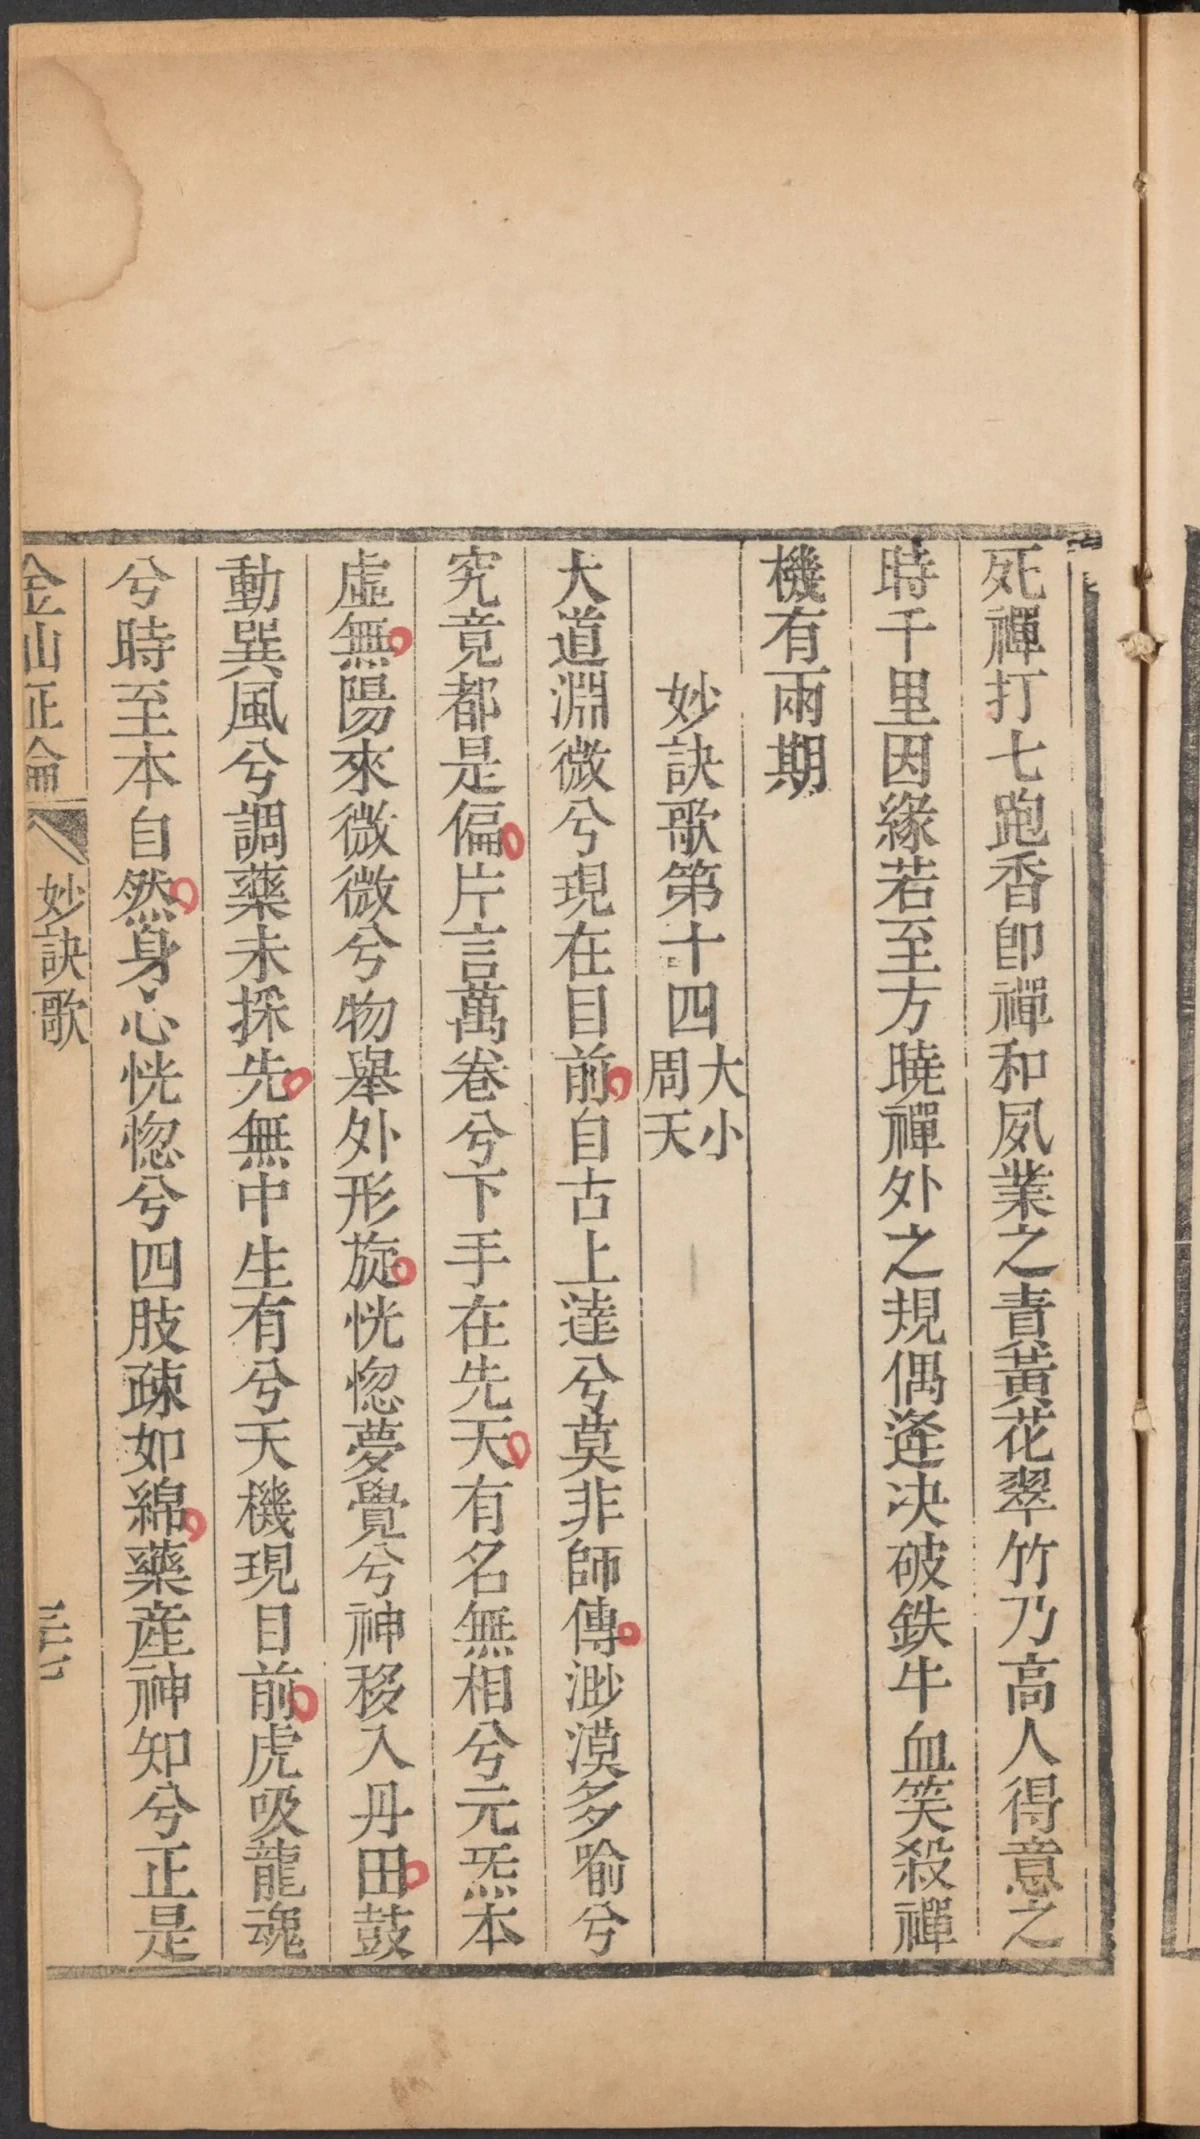 死禪打七跑香卽禪和夙業之責黃花翠竹乃高人得意之
時千里因緣若至方曉禪外之規偶逢决破鉄牛血笑殺禪
機有兩期
妙訣歌第十四大小周天
大道淵微兮現在目前自古上達兮莫非師傳渺漠多喻兮
究竟都是偏片言萬卷兮下手在先天有名無相兮元炁本
虛無陽來微微兮物舉外形旋恍惚夢覺兮神移入丹田鼓
動巽風兮調藥未採先無中生有兮天機現目前虎吸龍魂
兮時至本自然身心恍惚兮四肢疎如綿藥産神知兮正是
金仙証論 妙訣歌